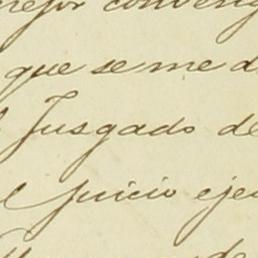 mejor conveng
que se me d
Jusgado de
el juicio eje
de